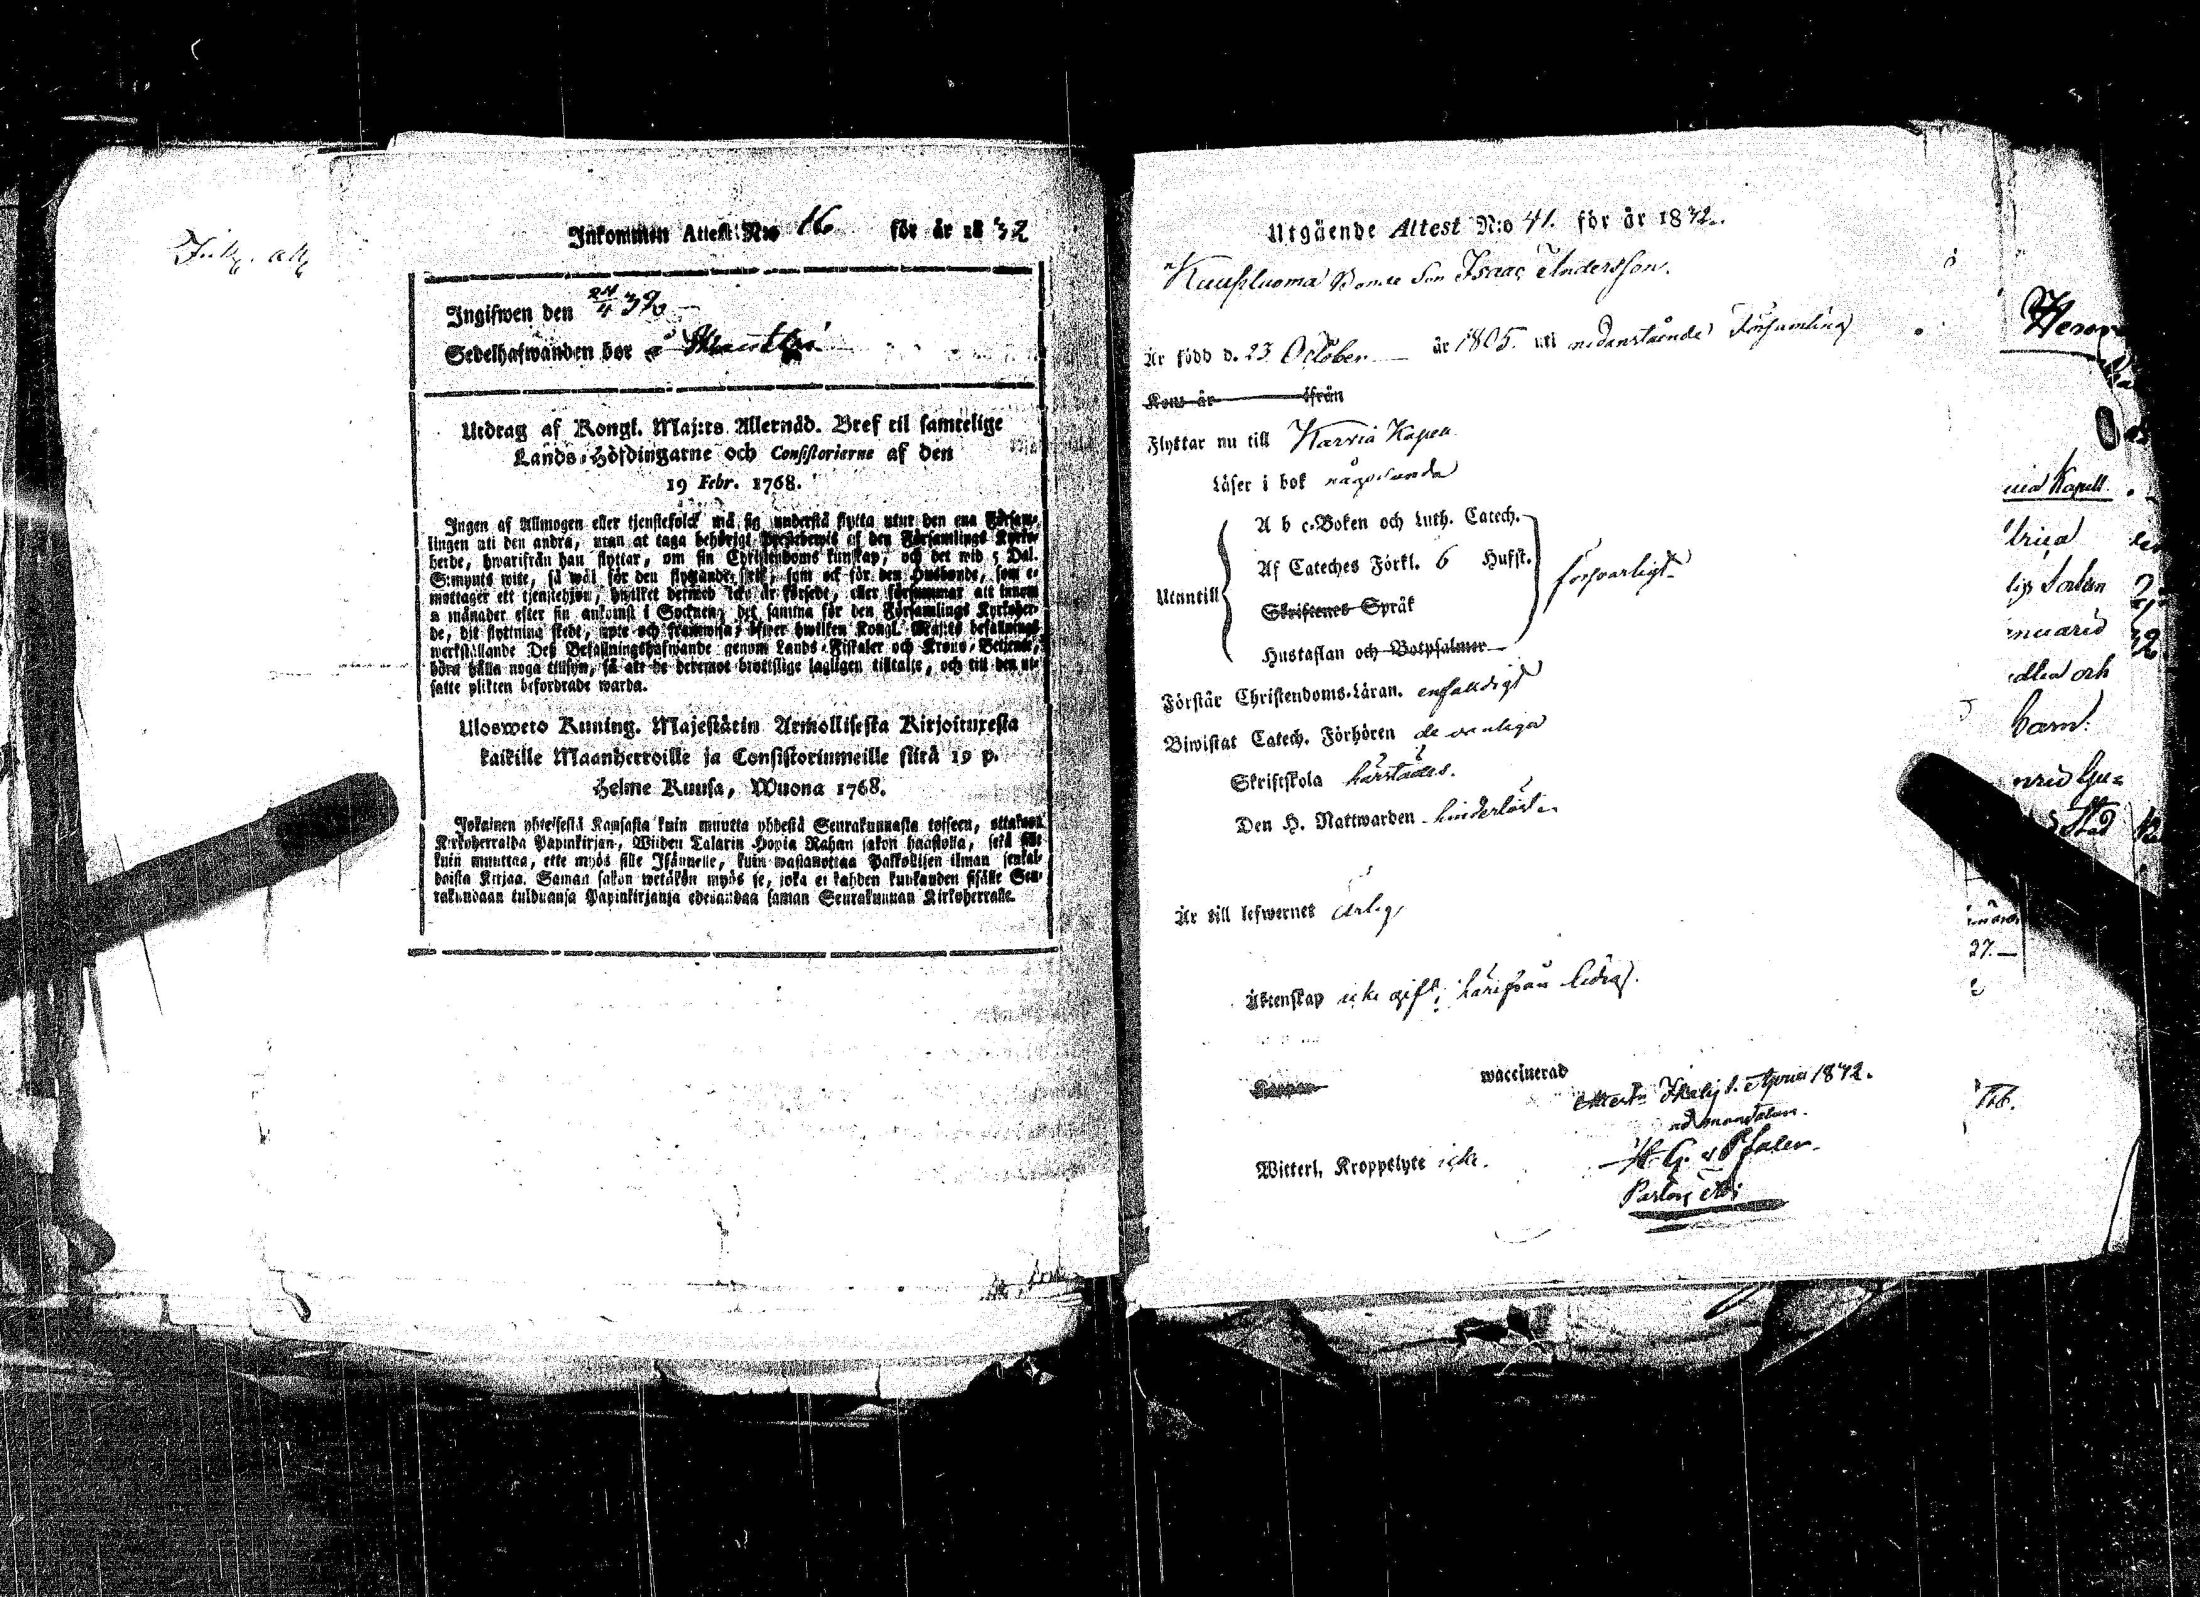 Inkommen Attest N:o 16 för år 1832
Ingifwen den 24/4 32
Sedelhafwanden bor å
Utdrag af Kongl. Maj:ts Allernåd. Bref til samtelige
Lands-Höfdingarne och Consistorierne af den
19 Febr. 1768.
Ingen af Allmogen eller tjenstefolck må sig understå flytta utur den ena Försam-
lingen uti den andra, utan at taga behörigt Prestebewis af den Församlings Kyrko-
herde, hwarifrån han flyttar, om sin Christendoms kunskap, och det wid 5 Dal.
S:mynts wite, så wäl för den flyttande sielf, som ock för den Husbonde, som e-
mottager ett tjenstehjon, hwilket dermed icke är försedt, eller försummar att innom
2 månader efter sin ankomst i Socknen, det samma för den Församlings Kyrkoher-
de, dit flyttning skedt, upte och framwisa; öfwer hwilken Kongl. Maj:ts befallnings
werkställande Deß Befallningshafwande genom Lands-Fiskaler och Krono-Betjente,
böra hålla noga tillsyn, så att de deremot brottslige lagligen tilltalte, och till den ut-
satte plikten befordrade warda.
Ulosweto Kuning. Majestätin Armollisesta Kirjoituxesta
kaikille Maanherroille ja Consistoriumeille siitä 19 p.
Helme Kuusa, Wuona 1768.
Jokainen yhteisestä Kansasta kuin muutta yhdestä Seurakunnasta toiseen, ottakaan
Kirkoherralda Papinkirjan, Wiiden Talarin Hopia Rahan sakon haastolla, sekä sille
kuin muuttaa, ette myös sille Isännelle, kuin wastanottaa Palkollisen ilman senkal-
daista Kirjaa. Saman sakon wetäkön myös se, joka ei kahden kuukauden sisälle Seu-
rakundaan tulduansa Papinkirjansa edesandaa saman Seurakunnan Kirkoherralle.
Utgående Attest N:o 41. för år 1832.
Kuusluoma Bonde Son Isaac Andersson.
Är född d. 23 October år 1805. uti nedanstående Församling
Kom år ifrån
Flyttar nu till Karvia Kapell
Läser i bok någorlunda
A b c-Boken och Luth. Catech.
Af Cateches Förkl. 6 Hufst.
Utantill försvarligt
Skriftenes Språk
Hustaflan och Botpsalmer
Förstår Christendoms-Läran. enfaldigt
Biwistat Catech. Förhören de vanliga
Skriftskola härstädes.
Den H. Nattwarden hinderlöst
Är till lefwernet ärlig
Äktenskap icke gift, härifrån ledig.
waccinerad
Attest. Ikalis d. April 1832.
Witterl. Kroppslyte icke.
H. G. v Pfaler
Pastors Adj